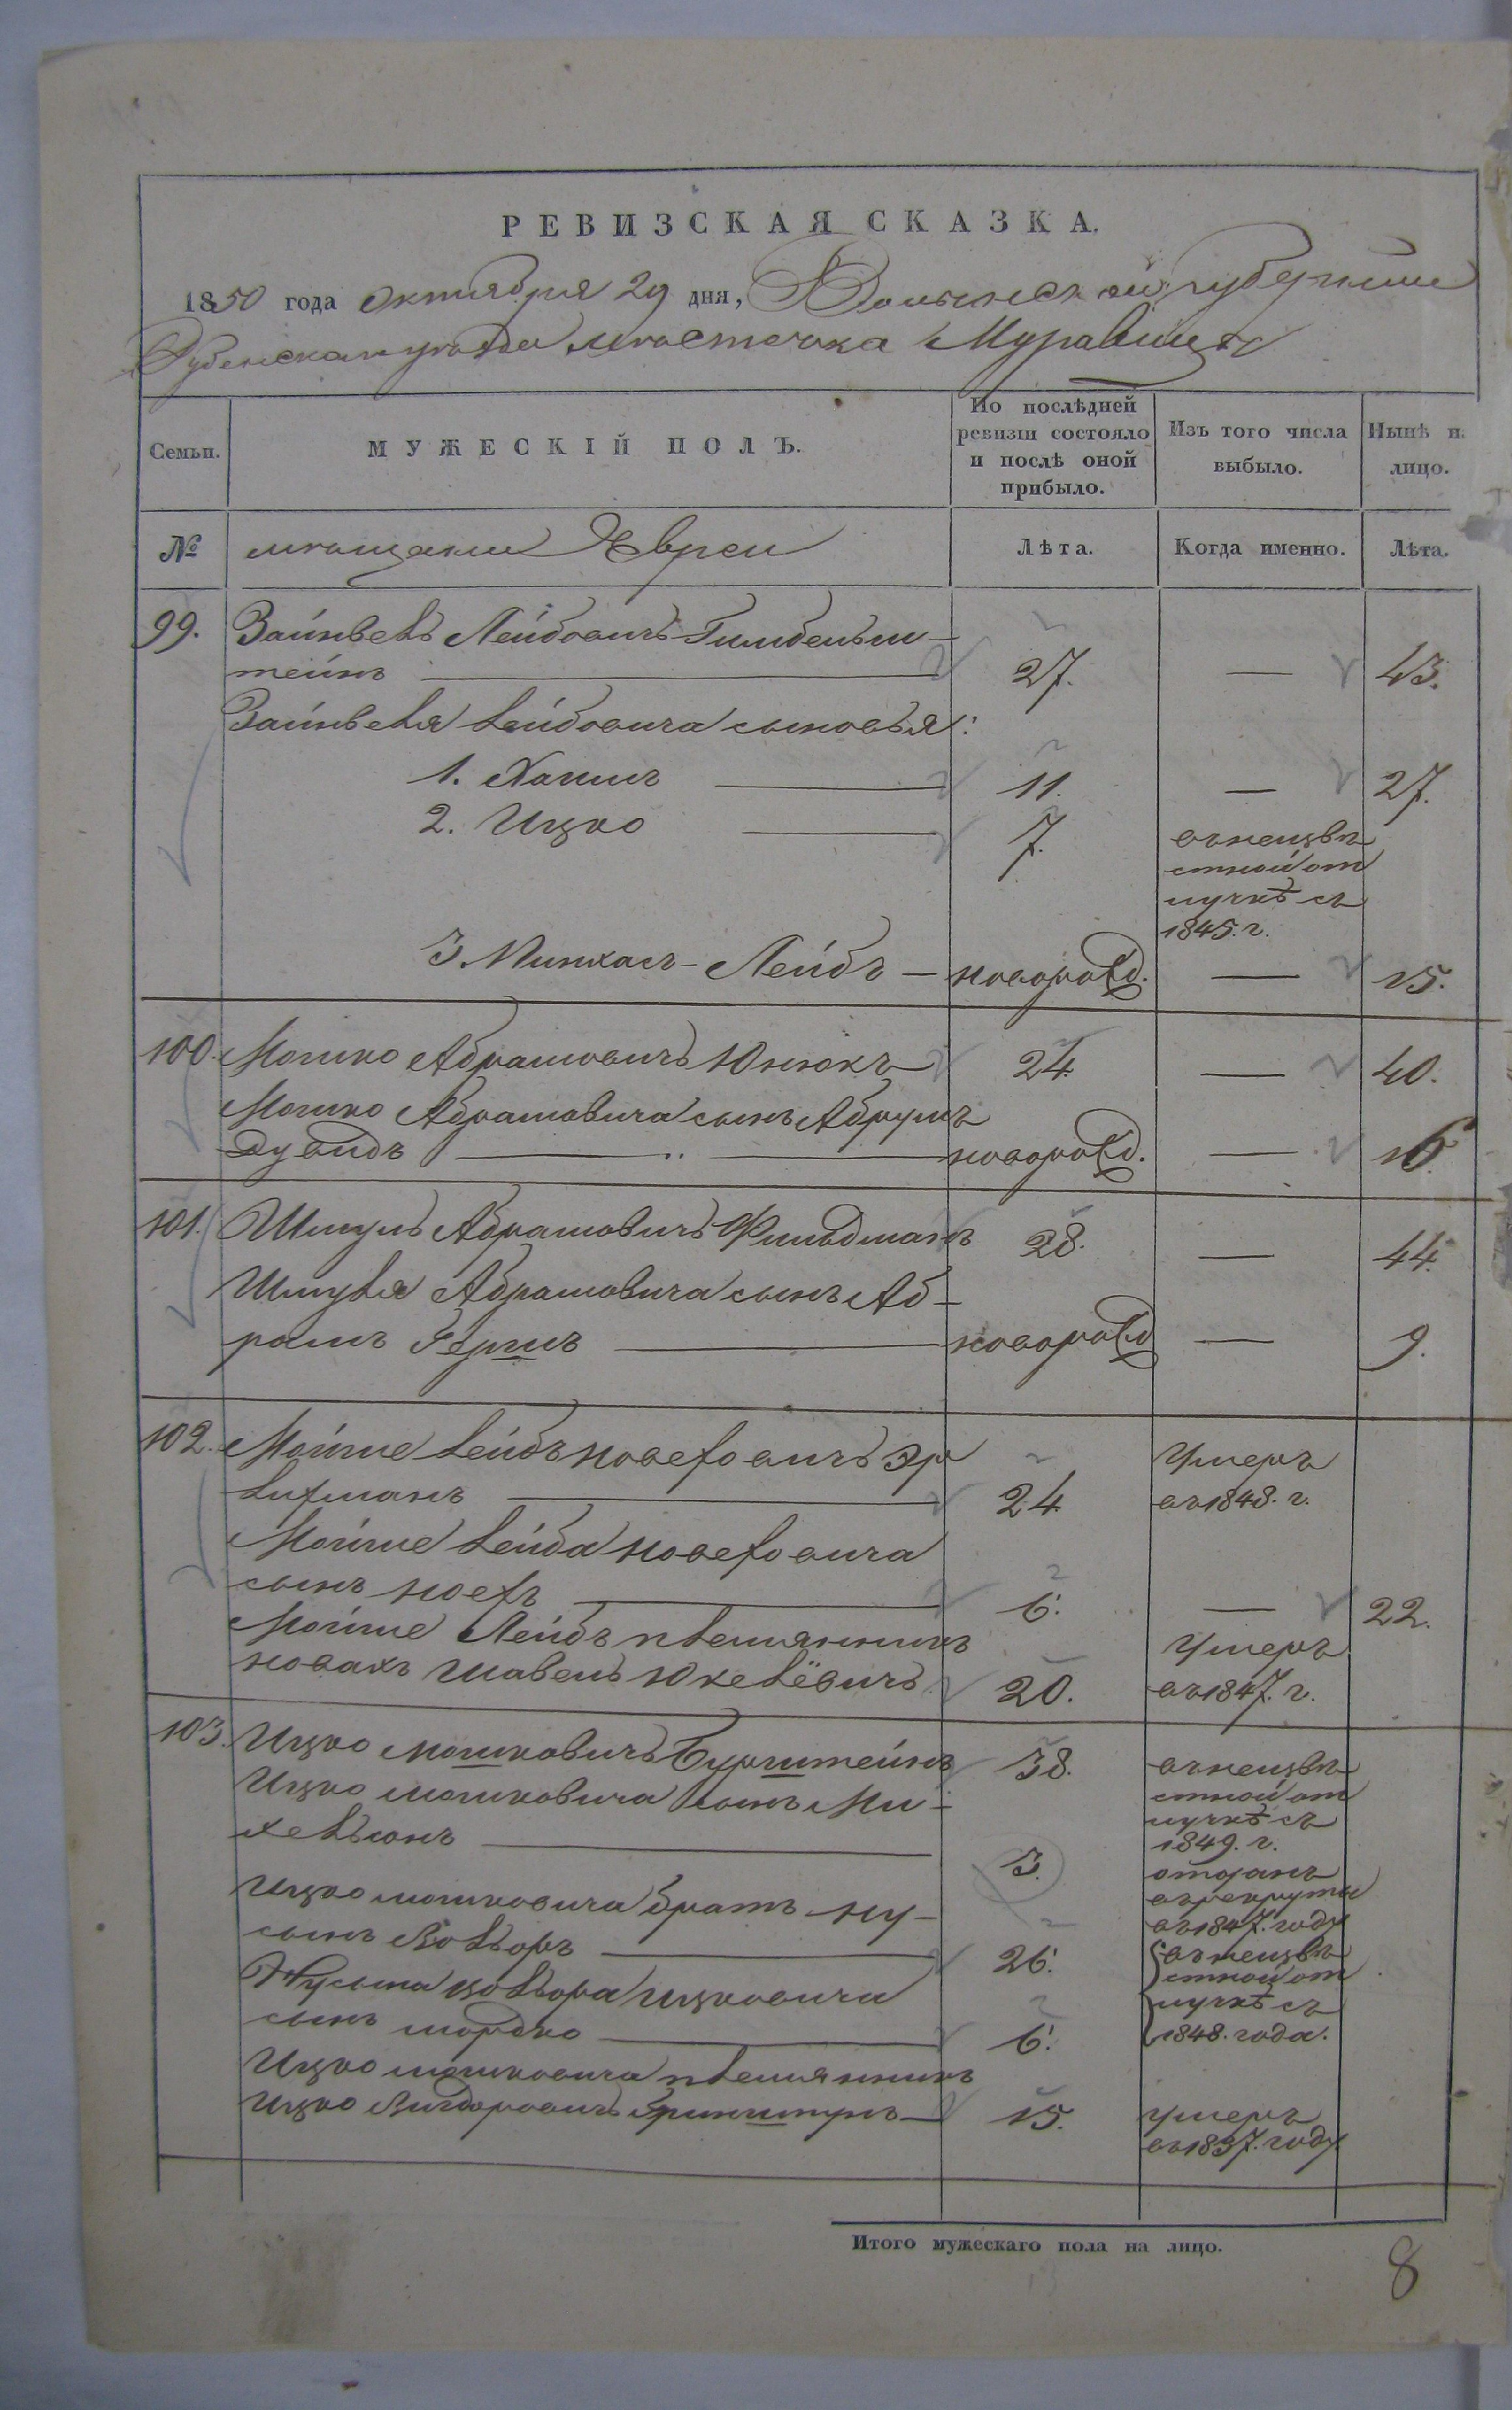 РЕВИЗСКАЯ СКАЗКА.
1850 года Октября 29 дня, Волынской губернии
Дубенского уѣзда мѣстечка Муравицъ
Семьи.
МУЖЕСКІЙ ПОЛЪ.
По послѣдней ревизіи состояло и послѣ оной прибыло.
Изъ того числа выбыло.
Нынѣ н. лицо.
№ мѣщане Евреи Лѣта. Когда именно. Лѣта.
99. Зайнвель Лейбовичъ Гимбельш-
тейнъ 27. — 43.
Зайнвеля Лейбовича сыновья:
1. Хаимъ 11. — 27.
2. Ицко 7. въ неизвѣ
стной от
лучкѣ съ
1845. г.
3. Пинхасъ-Лейбъ — новорожд. — 15.
100. Мошко Абрамовичъ Юнюкъ 24. — 40.
Мошко Абрамовича сынъ Абрумъ
Дувидъ новорожд. — 16.
101. Шмуль Абрамовичъ Фильдманъ 28. — 44.
Шмуля Абрамовича сынъ Аб-
рамъ Гершъ новорожд — 9.
102. Мойше Лейбъ Іосефовичъ Эр
лихманъ 24. Умеръ
въ 1848. г.
Мойше Лейба Іосефовича
сынъ Іосефъ 6. — 22.
Мойше Лейбъ племянникъ
Новахъ Шавель Юкелёвичъ 20. Умеръ
въ 1847. г.
103. Ицко Мошковичъ Бурштейнъ 38. въ неизвѣ
стной от
лучкѣ съ
1849. г.
Ицко Мошковича сынъ Ми-
хельюнъ 3. отданъ
въ рекруты
въ 1847. году
Ицко Мошковича братъ Ну-
сынъ 26. въ неизвѣ
стной от
лучкѣ съ
1848. года.
Нусына Ицковича
сынъ Мордко 6.
Ицко Мошковича племянникъ
Ицко 15. умеръ
въ 1837. году
Итого мужескаго пола на лицо.
8